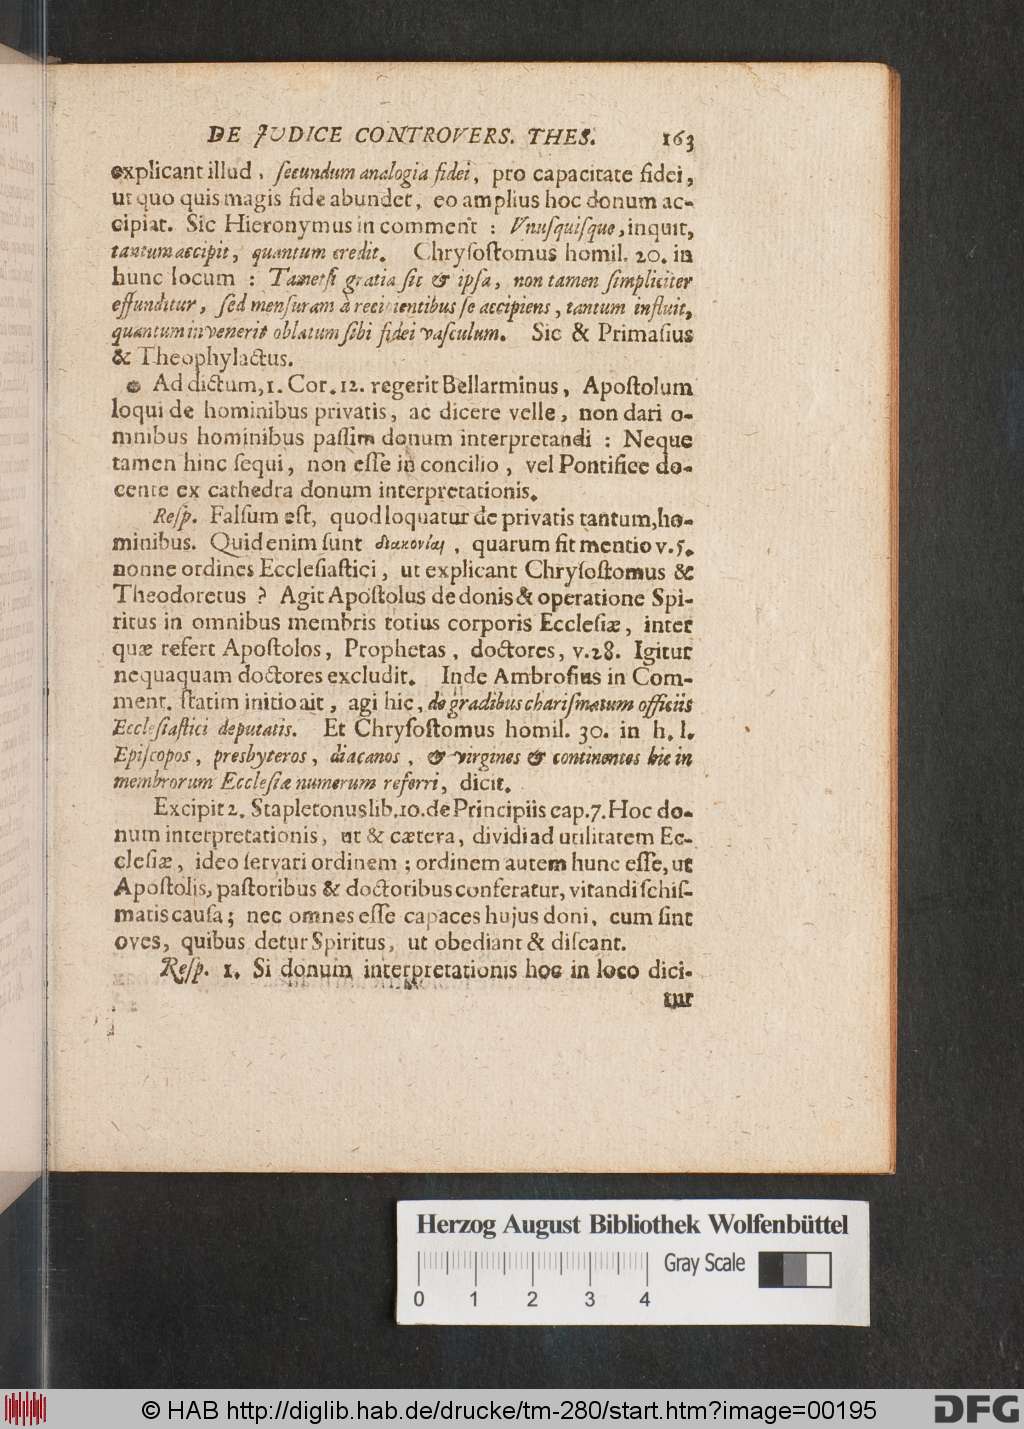 DE JVDICE CONTROVERS. THES. 163
explicant illud, ſecundum analogia fidei, pro capacitate fidei,
ut quo quis magis fide abundet, eo amplius hoc donum ac-
cipiat. Sic Hieronymus in comment : Vnuſquiſque, inquit,
tantum accipit, quantum credit. Chryſoſtomus homil. 20. in
hunc locum : Tametſi gratia ſit & ipſa, non tamen ſimpliciter
effunditur, ſed menſuram à recipientibus ſe accipiens, tantum influit,
quantum invenerit oblatum ſibi fidei vaſculum. Sic & Primaſius
& Theophylactus.
Ad dictum, 1. Cor. 12. regerit Bellarminus, Apoſtolum
loqui de hominibus privatis, ac dicere velle, non dari o-
mnibus hominibus paſſim donum interpretandi : Neque
tamen hinc ſequi, non eſſe in concilio, vel Pontifice do-
cente ex cathedra donum interpretationis.
Reſp. Falſum eſt, quod loquatur de privatis tantum, ho-
minibus. Quid enim ſunt διακονίαι, quarum fit mentio v. 5.
nonne ordines Eccleſiaſtici, ut explicant Chryſoſtomus &
Theodoretus ? Agit Apoſtolus de donis & operatione Spi-
ritus in omnibus membris totius corporis Eccleſiæ, inter
quæ refert Apoſtolos, Prophetas, doctores, v. 28. Igitur
nequaquam doctores excludit. Inde Ambroſius in Com-
ment. ſtatim initio ait, agi hic, de gradibus chariſmatum officiis
Eccleſiaſtici deputatis. Et Chryſoſtomus homil. 30. in h. l.
Epiſcopos, presbyteros, diacanos, & virgines & continentes hic in
membrorum Eccleſiæ numerum referri, dicit.
Excipit 2. Stapletonus lib. 10. de Principiis cap. 7. Hoc do-
num interpretationis, ut & cætera, dividi ad utilitatem Ec-
cleſiæ, ideo ſervari ordinem ; ordinem autem hunc eſſe, ut
Apoſtolis, paſtoribus & doctoribus conferatur, vitandi ſchiſ-
matis cauſa ; nec omnes eſſe capaces hujus doni, cum ſint
oves, quibus detur Spiritus, ut obediant & diſcant.
Reſp. 1. Si donum interpretationis hoc in loco dici-
tur
Herzog August Bibliothek Wolfenbüttel
Gray Scale
0 1 2 3 4
© HAB http://diglib.hab.de/drucke/tm-280/start.htm?image=00195
DFG